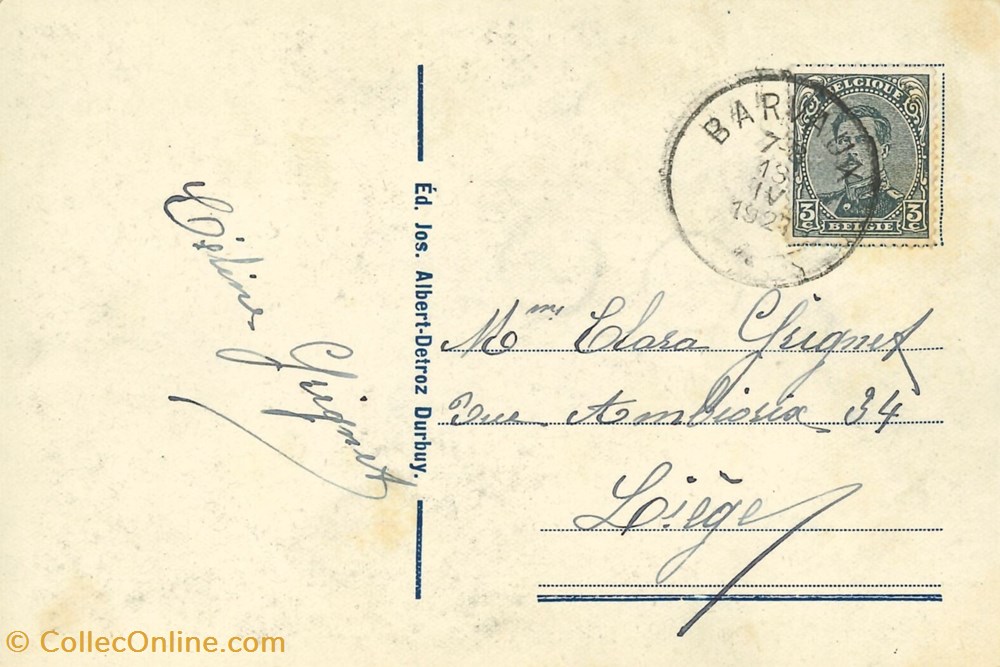 Céline Grignet
Éd. Jos. Albert-Detroz Durbuy.
BARVAUX
13
IV
BELGIQUE
3 C 3 C
BELGIE
Mme Clara Grignet
Rue Ambiorix 34
Liège
© CollecOnline.com